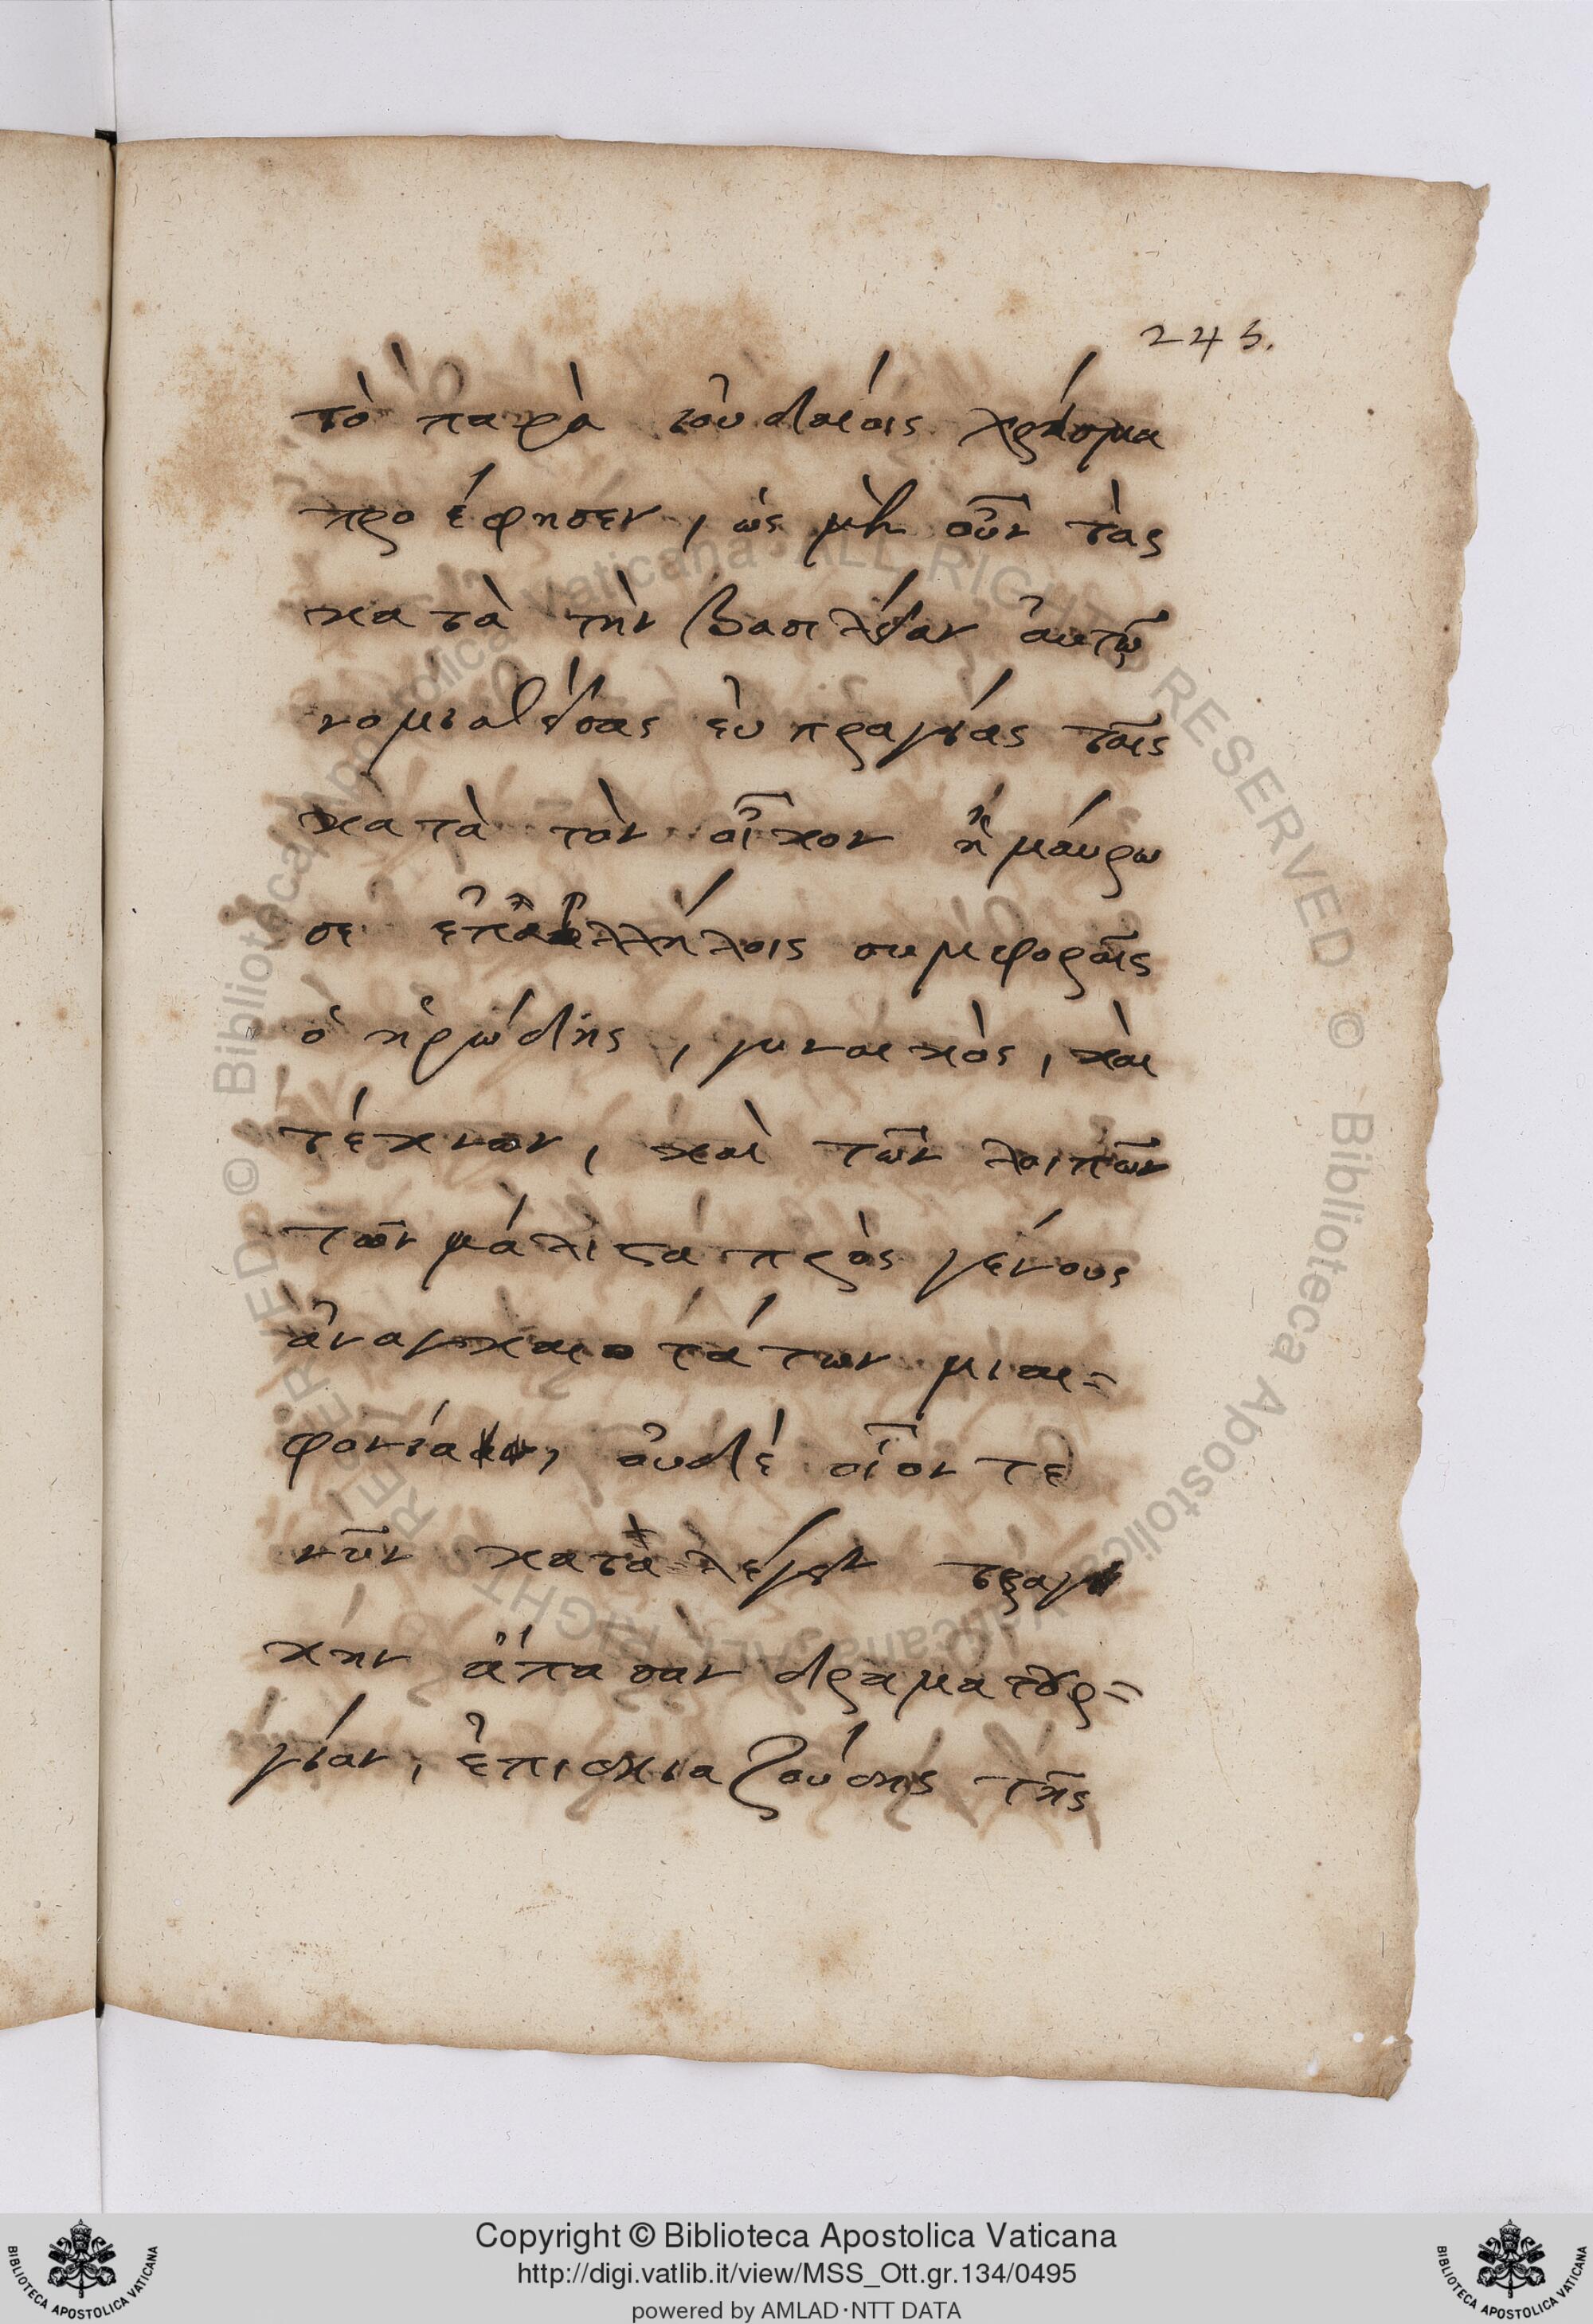 245.
τὸ παρὰ ἰουδαίοις χρῖσμα
προ έφησεν, ὡς μὲν οὖν τὰς
κατὰ τὴν βασιλείαν ἀυτῷ
νομισθείσας ἐυπραγίας ταῖς
κατὰ τὸν οἶκον ἠμάυρω
σε ἐπαλλήλοις συμφοραῖς
ὁ ἡρώδης, γυναικὸς, καὶ
τέκνων, καὶ τῶν λοιπῶν
τῶν μάλιστα πρὸς γένους
ἀναγκαιοτάτων μιαι=
φονία, ὀυδέ οἷον τε
νῦν καταλέγειν τραγι
κὴν ἅπασαν δραματουρ=
γίαν, ἐπισκιαζούσης τῆς
© Biblioteca Apostolica Vaticana ALL RIGHTS RESERVED © Biblioteca Apostolica Vaticana ALL RIGHTS RESERVED
Copyright © Biblioteca Apostolica Vaticana
http://digi.vatlib.it/view/MSS_Ott.gr.134/0495
powered by AMLAD·NTT DATA
BIBLIOTECA APOSTOLICA VATICANA
BIBLIOTECA APOSTOLICA VATICANA